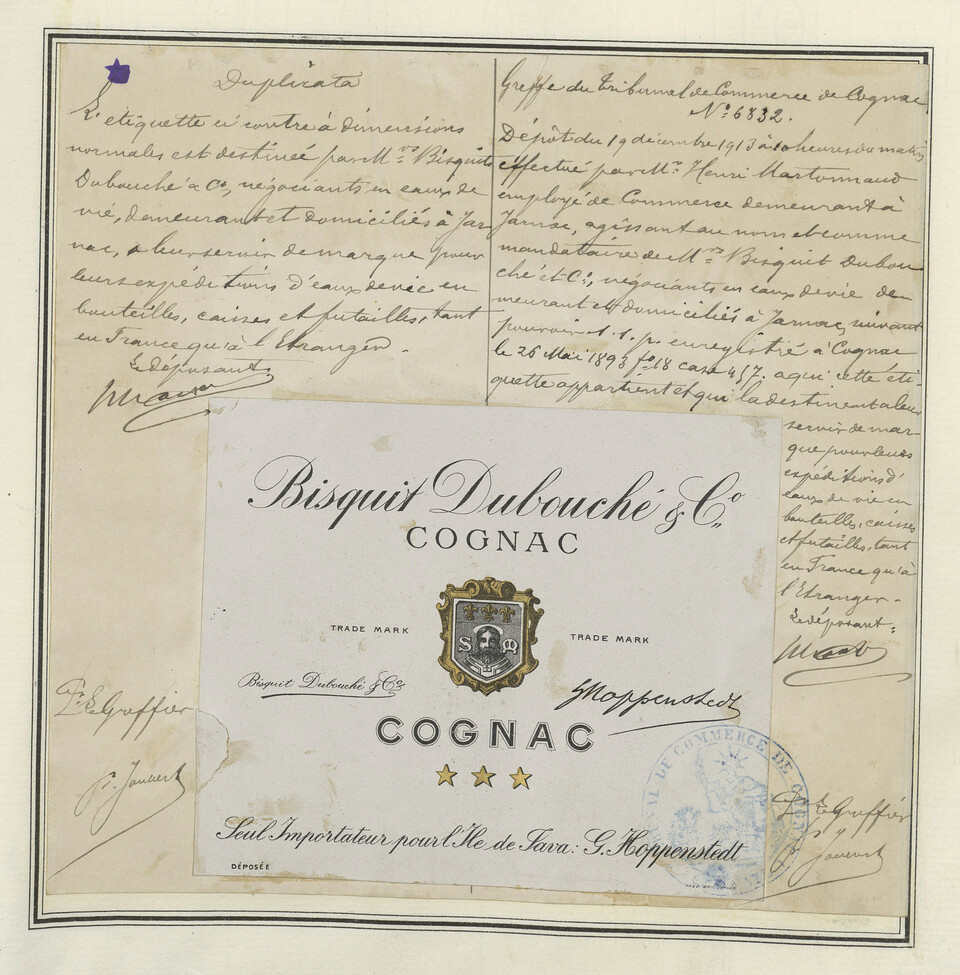 Duplicata
L'etiquette ci contre à dimensions
normales est destinée par M.rs Bisquit
Dubouché & Co, négociants en eaux de
vie, demeurant et domiciliés à Jar
nac, à leur servir de marque pour
leurs expéditions d'eaux de vie en
bouteilles, caisses et futailles, tant
en France qu'à l'Etranger.
Le déposant.
Greffe du Tribunal de Commerce de Cognac
No 6832.
Dépôt du 19 décembre 1913 à 10 heures du matin
effectué par Mr Henri Martonnaud
employé de Commerce demeurant à
Jarnac, agissant au nom et comme
mandataire de M.rs Bisquit Dubou
ché et Cie, négociants en eaux de vie de-
meurant et domiciliés à Jarnac, suivant
pouvoir s. s. p. enregistré à Cognac
le 26 Mai 1893 fo 18 case 457. a qui cette éti-
quette appartient et qui la destinent a leur
servir de mar-
que pour leurs
expéditions d'
eaux de vie en
bouteilles, caisses
et futailles, tant
en France qu'à
l'Etranger -
Le déposant:
Bisquit Dubouché & Co
COGNAC
S M
TRADE MARK TRADE MARK
Bisquit Dubouché & Co GHoppenstedt
COGNAC
Seul Importateur pour l'Ile de Java: G. Hoppenstedt
DÉPOSÉE
TRIBUNAL DE COMMERCE DE COGNAC
Pr Le Greffier
P. Joubert
Pr Le Greffier
Joubert